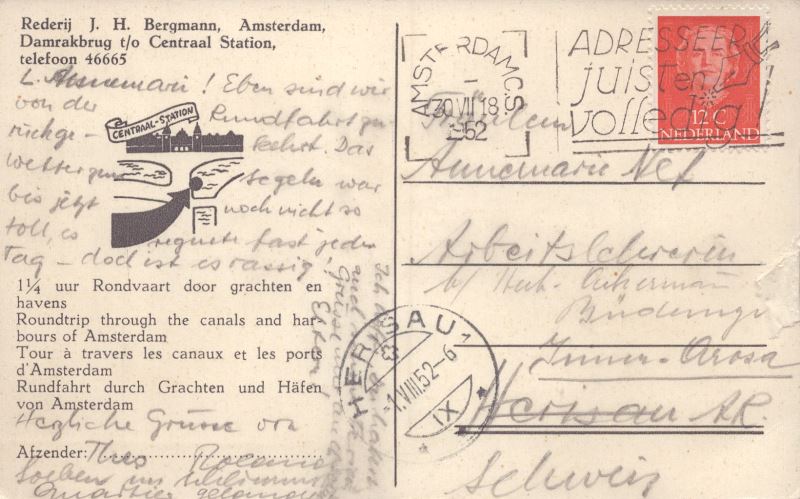 Rederij J. H. Bergmann, Amsterdam,
Damrakbrug t/o Centraal Station,
telefoon 46665
L. Annemarie! Eben sind wir
von der Rundfahrt zu-
rückge- kehrt. Das
CENTRAAL-STATION
segeln war
bis jetzt noch nicht so
toll, es regnete fast jeden
Tag – doch ist es rassig!
1¼ uur Rondvaart door grachten en
havens
Roundtrip through the canals and har-
bours of Amsterdam
Tour à travers les canaux et les ports
d'Amsterdam
Rundfahrt durch Grachten und Häfen
von Amsterdam
Herzliche Grüsse von
Afzender: Theo
Soeben im
Quartier
AMSTERDAM C.S
30 VII 18
1952
ADRESSEER
juist en
volledig!
12 C
NEDERLAND
Fräulein
Annemarie Nef
Arbeitslehrerin
b/
Inner-Arosa
Herisau AR.
Schweiz
HERISAU 1
-1.VIII.52-6
IX